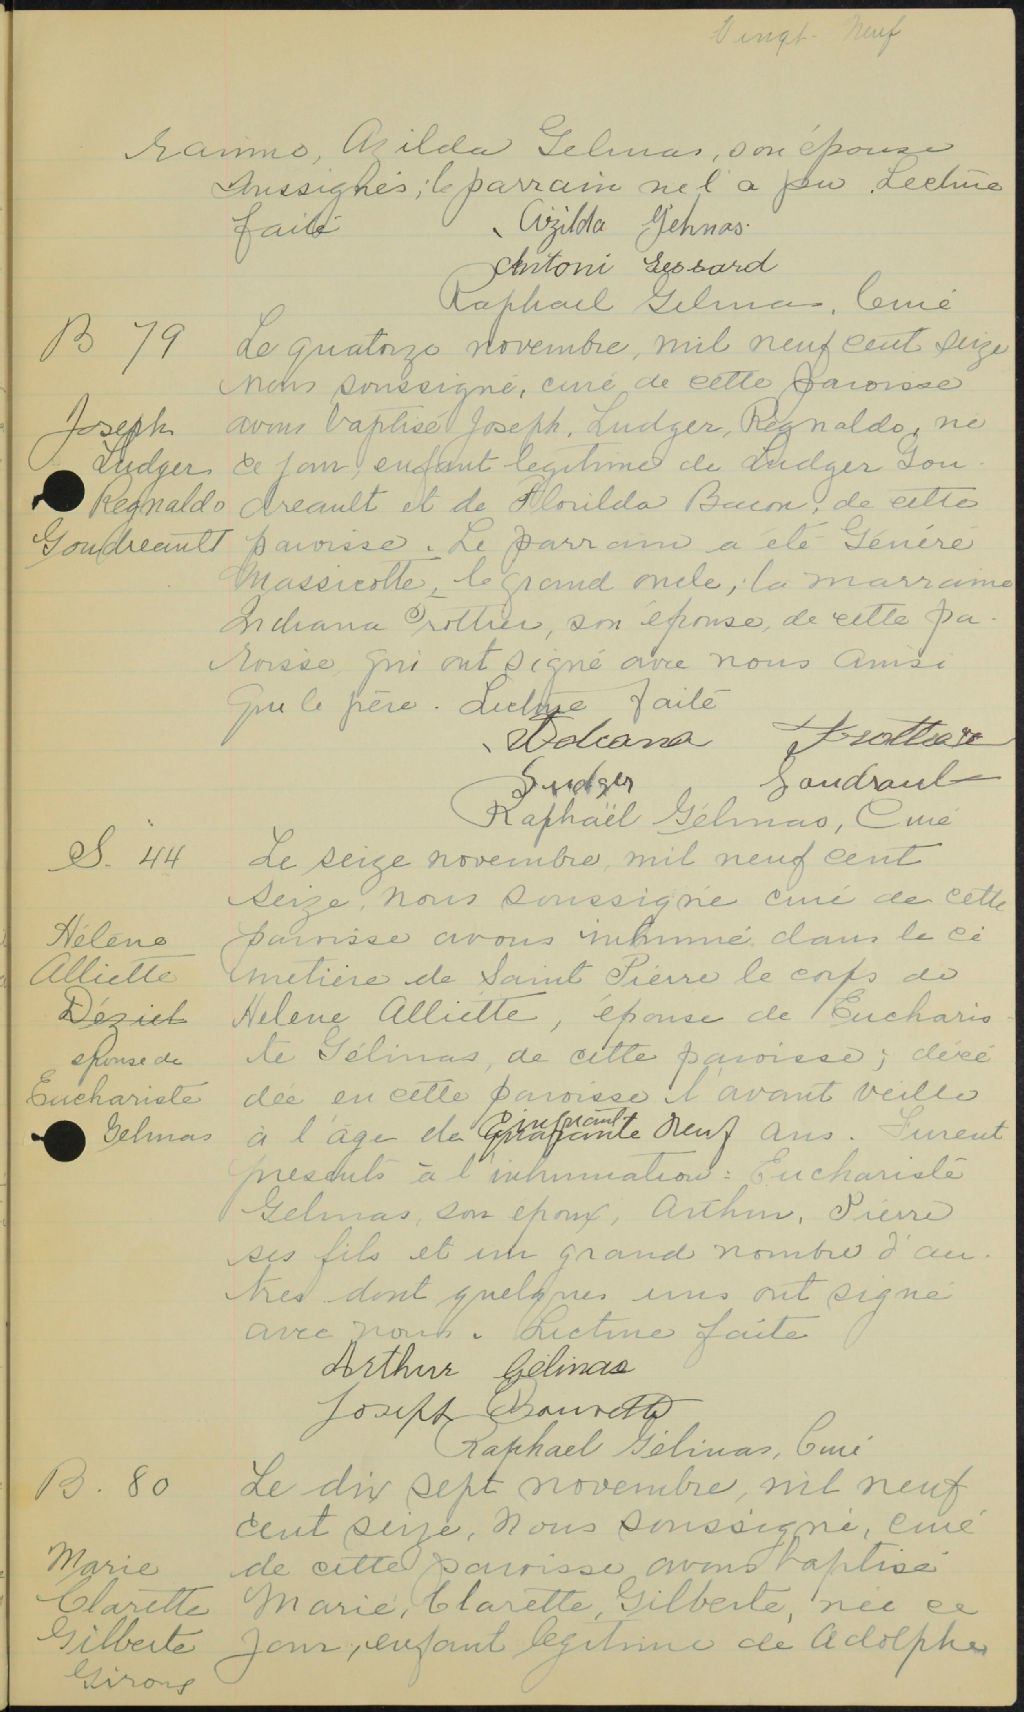 Vingt-Neuf
raine, Azilda Gelinas, son épouse
soussignés; le parrain ne l'a pu. Lecture
faite
Azilda Gelinas.
Antoni Lessard
Raphael Gelinas, Curé
B 79
Joseph
Ludger
Regnaldo
Goudreault
Le quatorze novembre, mil neuf cent seize
Nous soussigné, curé de cette paroisse
avons baptisé Joseph, Ludger, Regnaldo, né
ce jour, enfant legitime de Ludger Gou-
dreault et de Florilda Bacon, de cette
paroisse. Le parrain a été Généré
Massicotte, le grand oncle; la marraine
Indiana Trottier, son épouse, de cette pa-
roisse, qui ont signé avec nous ainsi
que le père. Lecture faite
Trottier
Ludger Goudrault
Raphaël Gélinas, Curé
S. 44
Hélène
Alliette
Déziel
épouse de
Euchariste
Gelinas
Le seize novembre, mil neuf cent
seize, nous soussigné curé de cette
paroisse avons inhumé dans le ci
metière de Saint Pierre le corps de
Helene Alliette, épouse de Eucharis
te Gélinas, de cette paroisse; décé
dée en cette paroisse l'avant veille
à l'âge de quarante neuf ans. Furent
presents à l'inhumation: Euchariste
Gelinas, son époux, Arthur, Pierre
ses fils et un grand nombre d'au-
tres dont quelques uns ont signé
avec nous. Lecture faite
Arthur Gélinas
Joseph
Raphael Gélinas, Curé
B. 80
Marie
Clarette
Gilberte
Giroux
Le dix sept novembre, mil neuf
cent seize, Nous soussigné, curé
de cette paroisse avons baptisé
Marie, Clarette, Gilberte, née ce
jour, enfant legitime de Adolphe